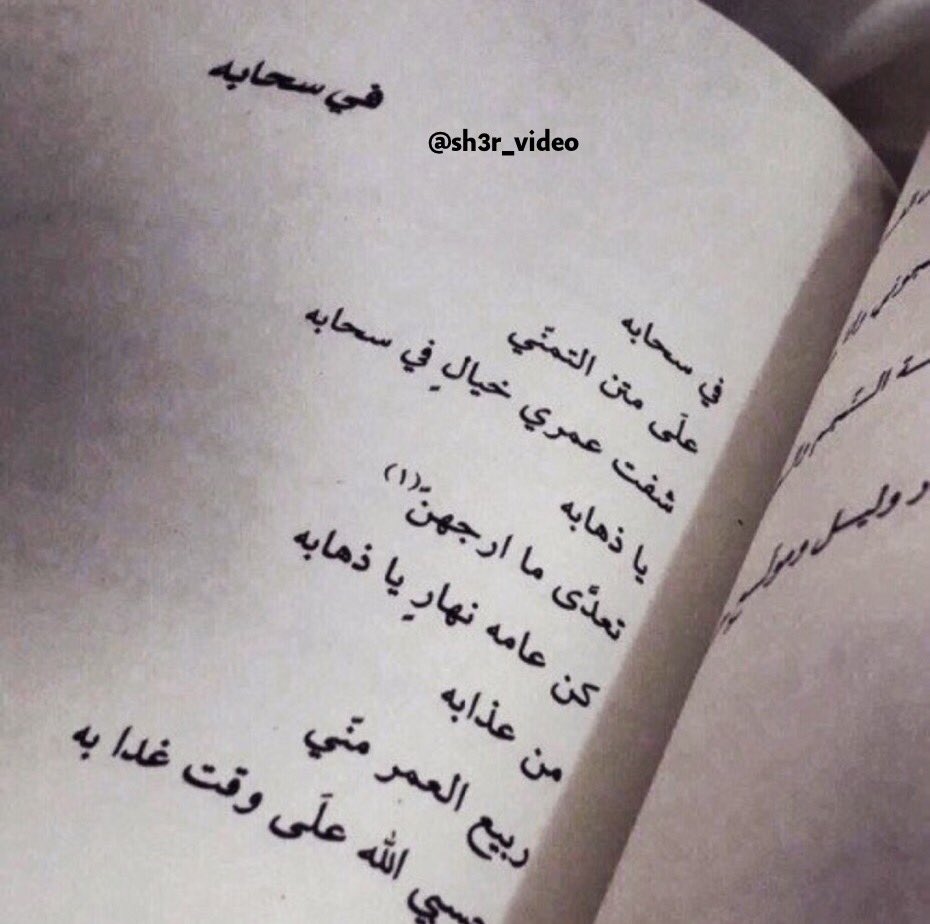 في سحابه
@sh3r_video
في سحابه
علَى متن التمنّي
شفت عمري خيالٍ في سحابه
يا ذهابه
تعدَّى ما ارجهنّ (١)
كن عامه نهارٍ يا ذهابه
من عذابه
ربيع العمر منّي
الله علَى وقت غدا به